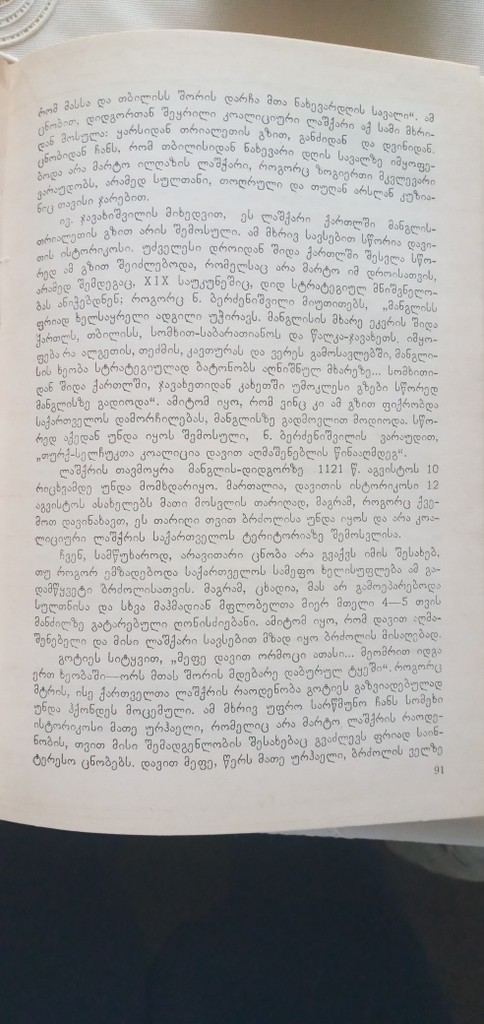 რომ მასსა და თბილისს შორის დარჩა მთა ნახევარდღის სავალი“. ამ
ცნობით, დიდგორთან შეყრილი კოალიციური ლაშქარი აქ სამი მხრი-
დან მოსულა: ყარსიდან თრიალეთის გზით, განძიდან და დვინიდან.
ცნობიდან ჩანს, რომ თბილისიდან ნახევარი დღის სავალზე იმყოფე-
ბოდა არა მარტო ილღაზის ლაშქარი, როგორც ზოგიერთი მკვლევარი
ვარაუდობს, არამედ სულთანი, თოღრული და თუღან არსლან კუზია-
ნიც თავისი ჯარებით.
ივ. ჯავახიშვილის მიხედვით, ეს ლაშქარი ქართლში მანგლის-
თრიალეთის გზით არის შემოსული. ამ მხრივ სავსებით სწორია დავი-
თის ისტორიკოსი. უძველესი დროიდან შიდა ქართლში შესვლა სწო-
რედ ამ გზით შეიძლებოდა, რომელსაც არა მარტო იმ დროისათვის,
არამედ შემდეგაც, XIX საუკუნეშიც, დიდ სტრატეგიულ მნიშვნელო-
ბას ანიჭებდნენ; როგორც ნ. ბერძენიშვილი მიუთითებს, „მანგლისს
ფრიად ხელსაყრელი ადგილი უჭირავს. მანგლისის მხარე ეკვრის შიდა
ქართლს, თბილისს, სომხით-საბარათიანოს და წალკა-ჯავახეთს. იმყო-
ფება რა ალგეთის, თეძმის, კავთურას და ვერეს გამოსავლებში, მანგლი-
სის ხეობა სტრატეგიულად ბატონობს აღნიშნულ მხარეზე... სომხითი-
დან შიდა ქართლში, ჯავახეთიდან კახეთში უმოკლესი გზები სწორედ
მანგლისზე გადიოდა“. ამიტომ იყო, რომ ვინც კი ამ გზით ფიქრობდა
საქართველოს დამორჩილებას, მანგლისზე გადმოვლით მოდიოდა. სწო-
რედ აქედან უნდა იყოს შემოსული, ნ. ბერძენიშვილის ვარაუდით,
„თურქ-სელჩუკთა კოალიცია დავით აღმაშენებლის წინააღმდეგ“.
ლაშქრის თავმოყრა მანგლის-დიდგორზე 1121 წ. აგვისტოს 10
რიცხვამდე უნდა მომხდარიყო. მართალია, დავითის ისტორიკოსი 12
აგვისტოს ასახელებს მათი მოსვლის თარიღად, მაგრამ, როგორც ქვე-
მოთ დავინახავთ, ეს თარიღი თვით ბრძოლისა უნდა იყოს და არა კოა-
ლიციური ლაშქრის საქართველოს ტერიტორიაზე შემოსვლისა.
ჩვენ, სამწუხაროდ, არავითარი ცნობა არ გვაქვს იმის შესახებ,
თუ როგორ ემზადებოდა საქართველოს სამეფო ხელისუფლება ამ გა-
დამწყვეტი ბრძოლისათვის. მაგრამ, ცხადია, მას არ გამოეპარებოდა
სულთნისა და სხვა მაჰმადიან მფლობელთა მიერ მთელი 4—5 თვის
მანძილზე გატარებული ღონისძიებანი. ამიტომ იყო, რომ დავით აღმა-
შენებელი და მისი ლაშქარი სავსებით მზად იყო ბრძოლის მისაღებად.
გოტიეს სიტყვით, „მეფე დავით ორმოცი ათასი... მეომრით იდგა
ერთ ხეობაში—ორს მთას შორის მდებარე დაბურულ ტყეში“. როგორც
მტრის, ისე ქართველთა ლაშქრის რაოდენობა გოტიეს გაზვიადებულად
უნდა ჰქონდეს მოცემული. ამ მხრივ უფრო სარწმუნო ჩანს სომეხი
ისტორიკოსი მათე ურჰაელი, რომელიც არა მარტო ლაშქრის რაოდე-
ნობის, თვით მისი შემადგენლობის შესახებაც გვაძლევს ფრიად საინ-
ტერესო ცნობებს. დავით მეფე, წერს მათე ურჰაელი, ბრძოლის ველზე
91